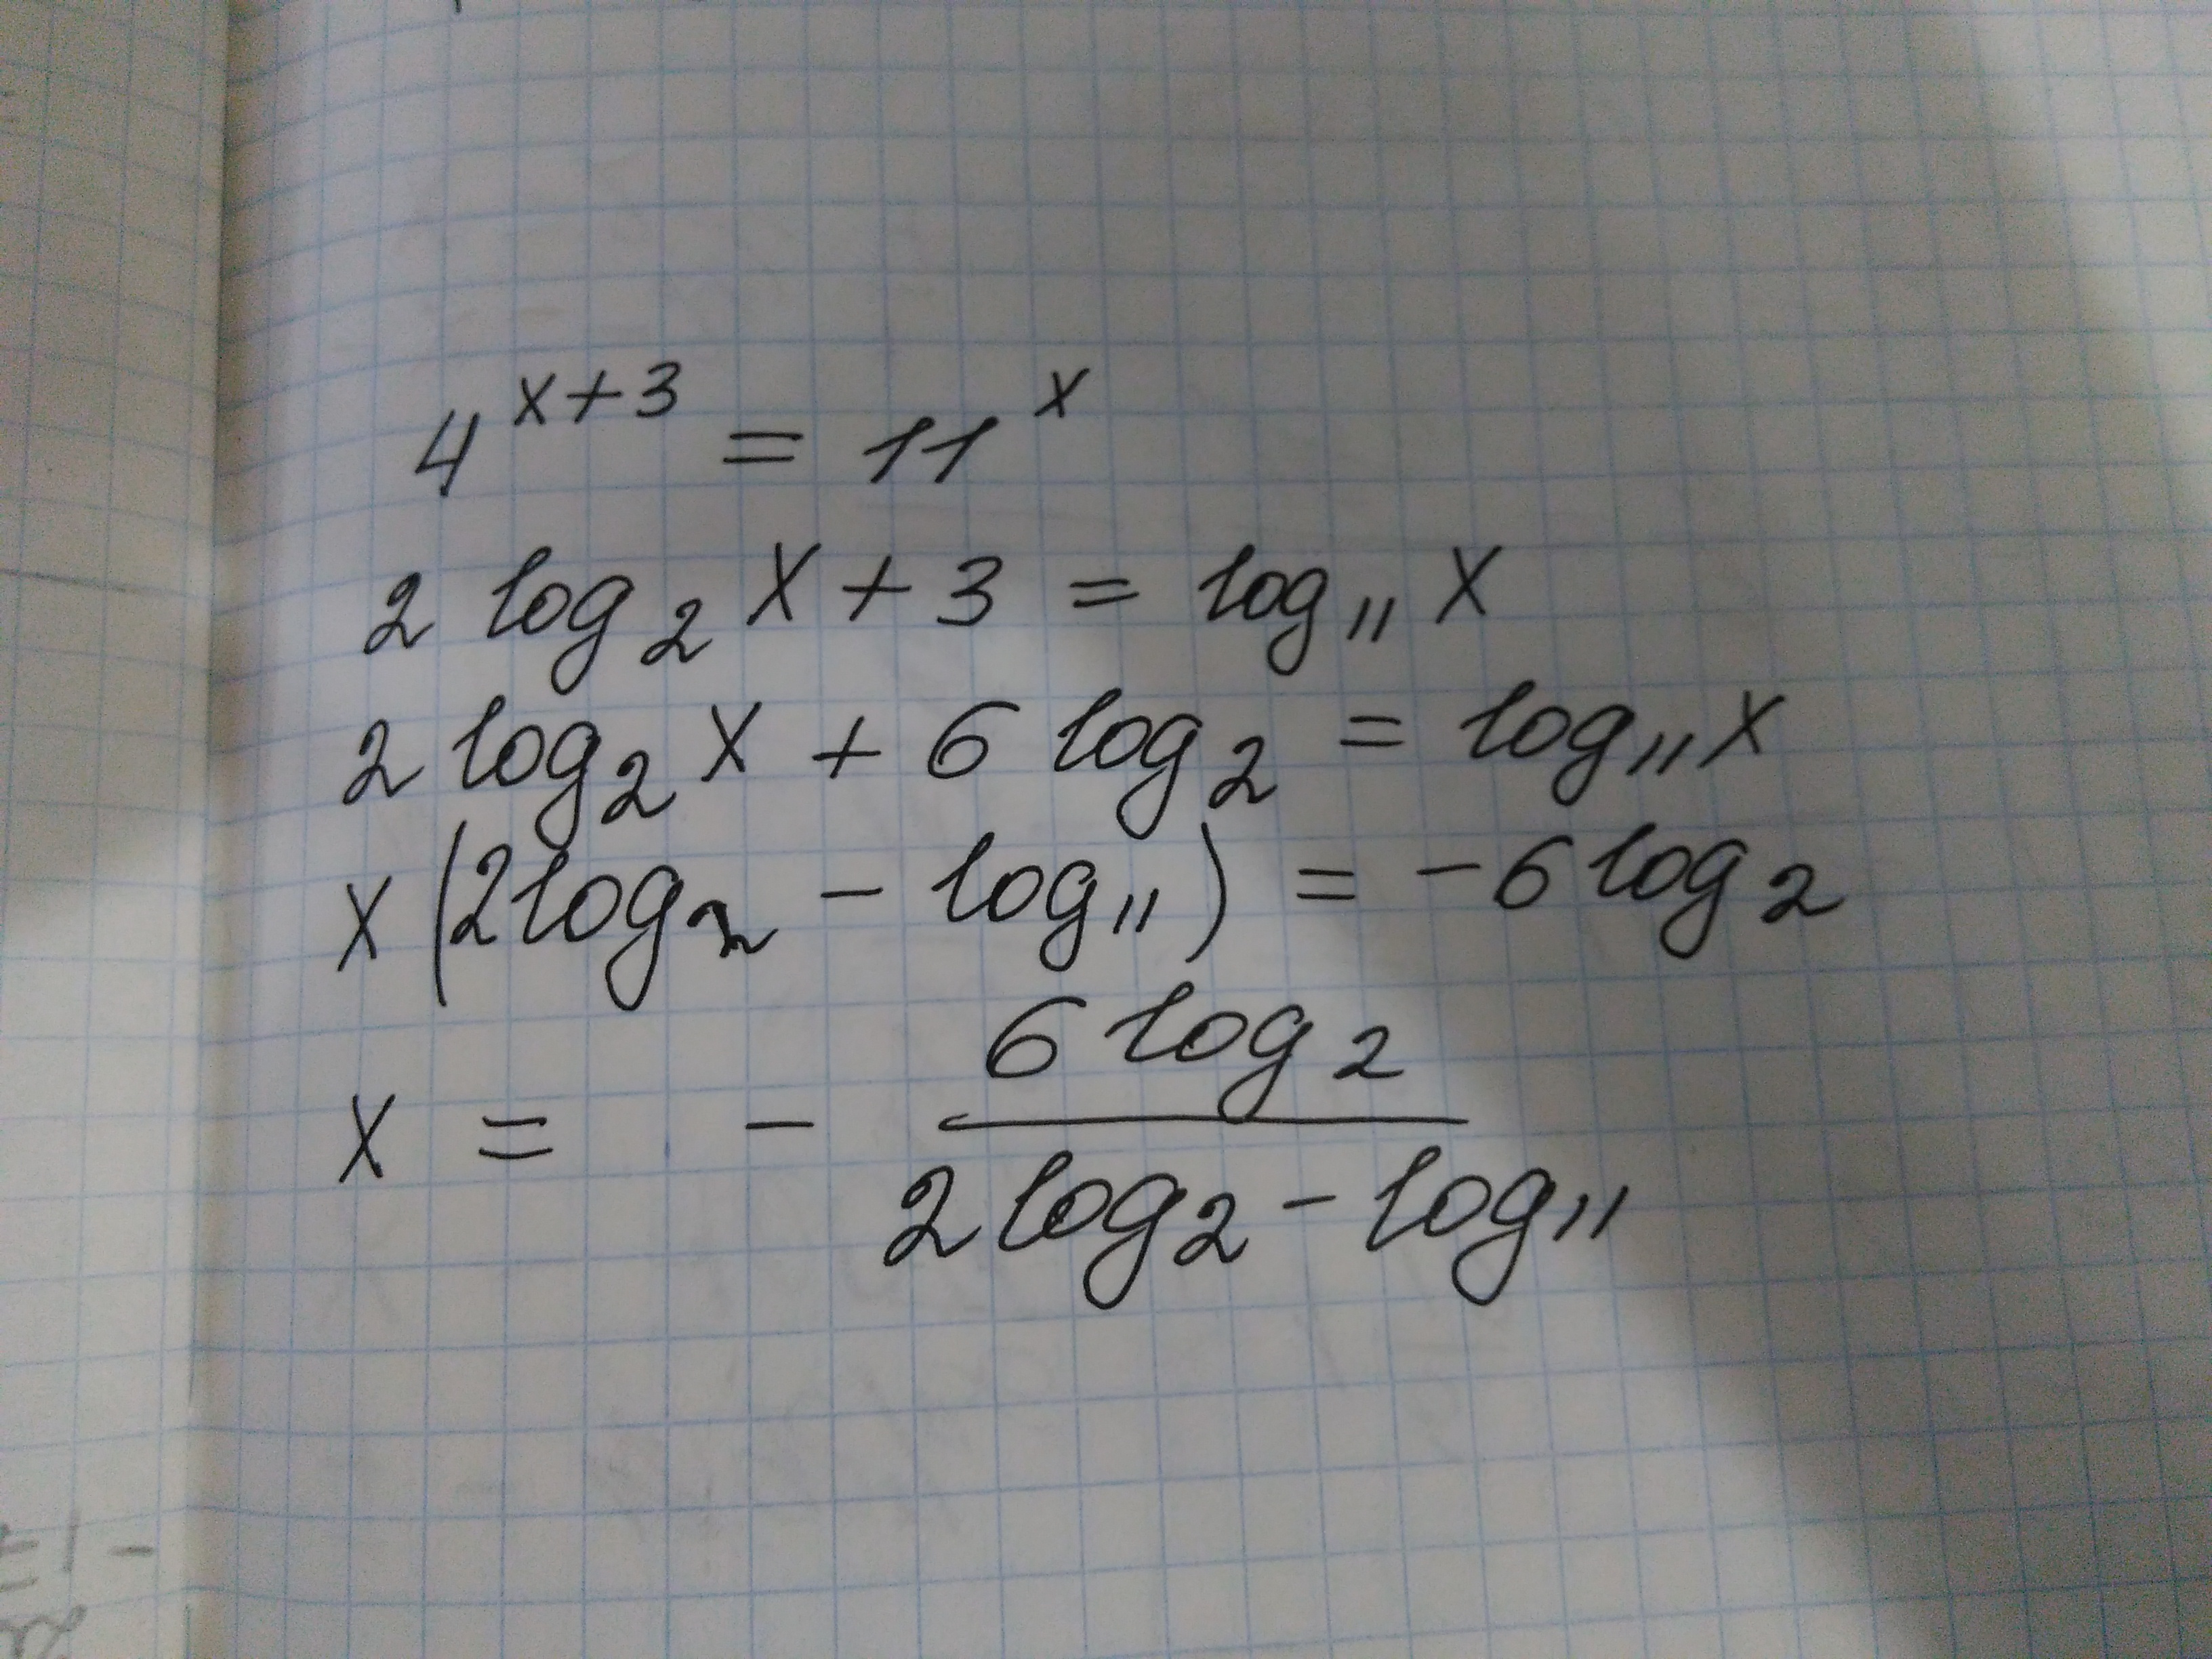 4^{x+3} = 11^x
2 log_2 x + 3 = log_{11} x
2 log_2 x + 6 log_2 = log_{11} x
x (2 log_2 - log_{11}) = - 6 log_2
x = - \frac{6 log_2}{2 log_2 - log_{11}}